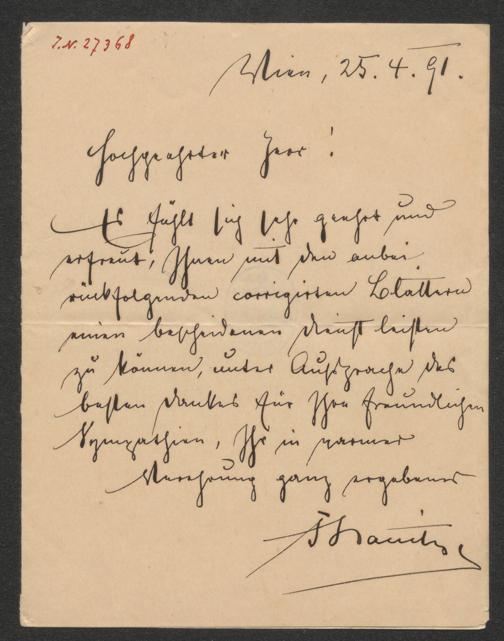 J.N. 27368
Wien, 25. 4. 91.
Hochgeehrter Herr!
Es fühlt sich sehr geehrt und
erfreut, Ihnen mit den anbei
rückfolgenden corrigirten Blättern
einen bescheidenen Dienst leisten
zu können, unter Aussprache des
besten Dankes für Ihre freundlichen
Sympathien, Ihr in warmer
Verehrung ganz ergebener